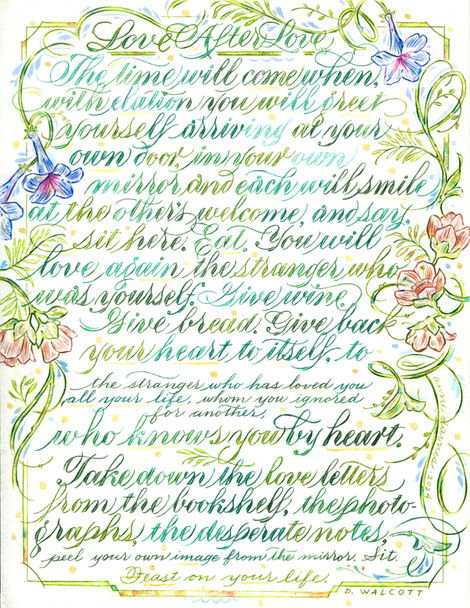 Love After Love
The time will come when,
with elation you will greet
yourself arriving at your
own door, in your own
mirror, and each will smile
at the other's welcome, and say,
sit here. Eat. You will
love again the stranger who
was yourself. Give wine.
Give bread. Give back
your heart to itself, to
the stranger who has loved you
all your life, whom you ignored
for another,
who knows you by heart.
Take down the love letters
from the bookshelf, the photo-
graphs, the desperate notes,
peel your own image from the mirror. Sit.
Feast on your life.
D. WALCOTT